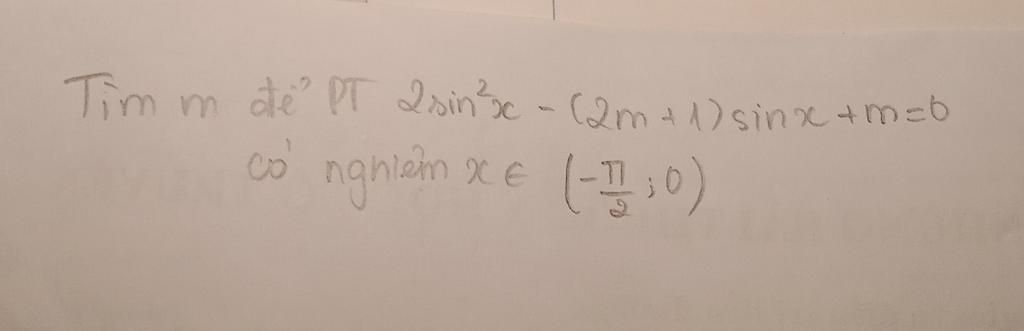 Tìm m để PT 2sin²x - (2m+1)sinx+m=0
có nghiệm x ∈ (-π/2 ; 0)